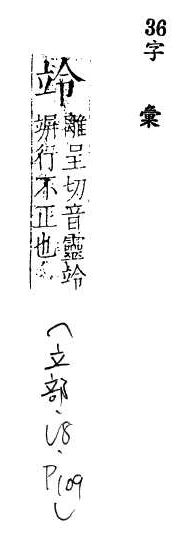 36字
彙
竛
離呈切音靈竛
行不正也
（立部、
P109）